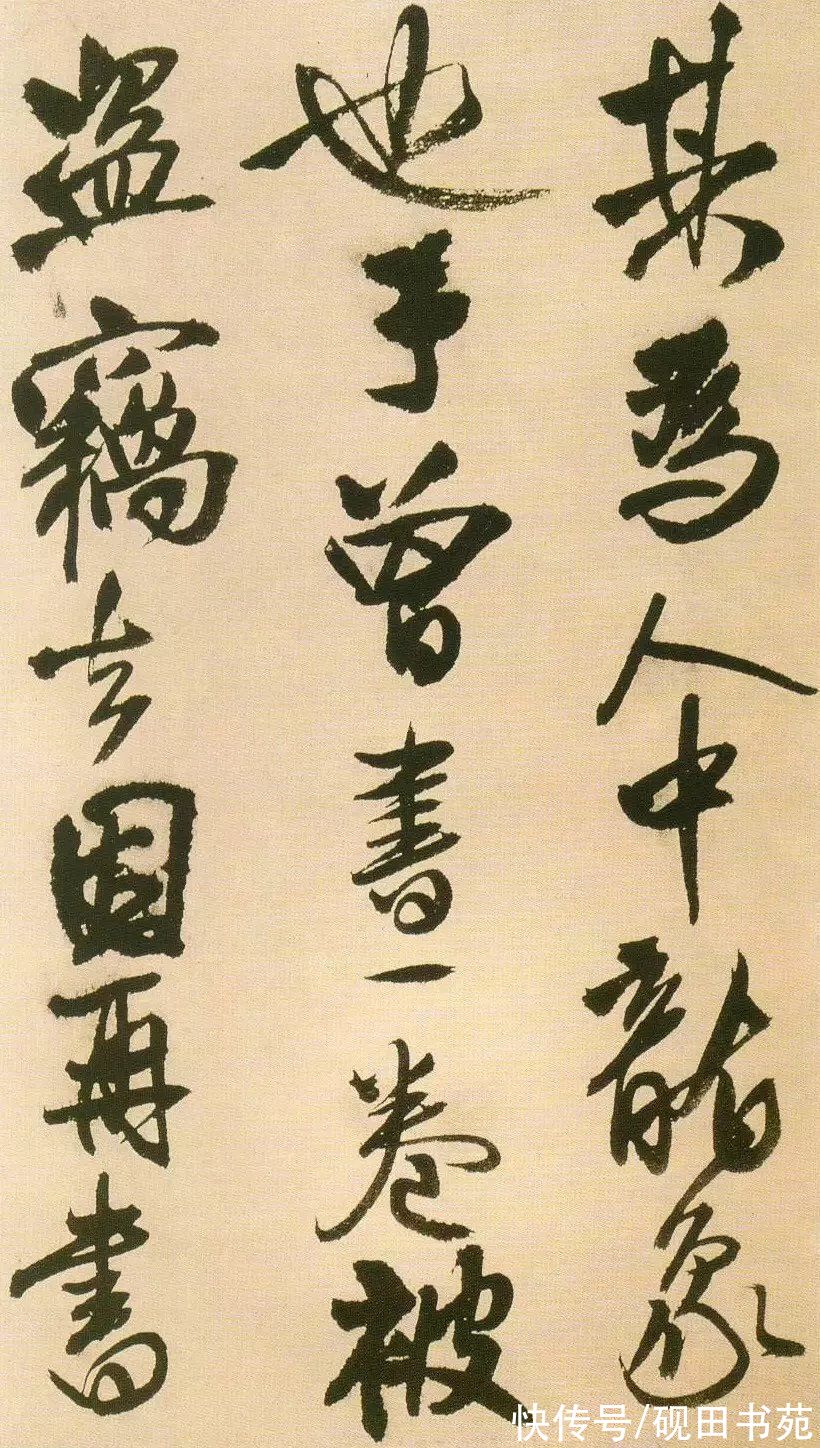 其為人中龍象
也予曾書一卷被
盜竊去因再書
快传号/砚田书苑